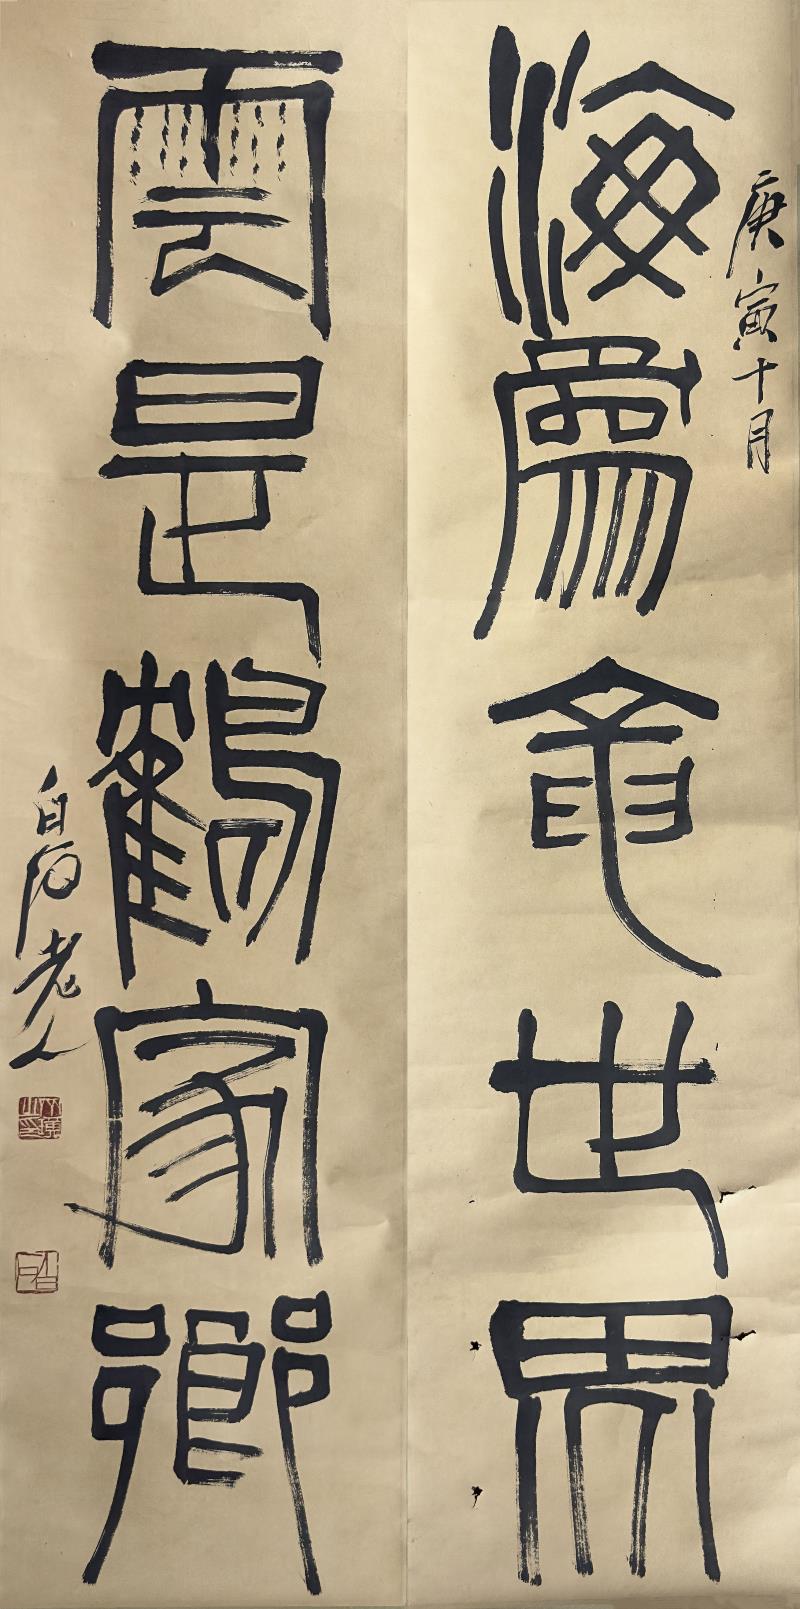 庚寅十月
海為龜世界
雲是鶴家鄉
白石老人